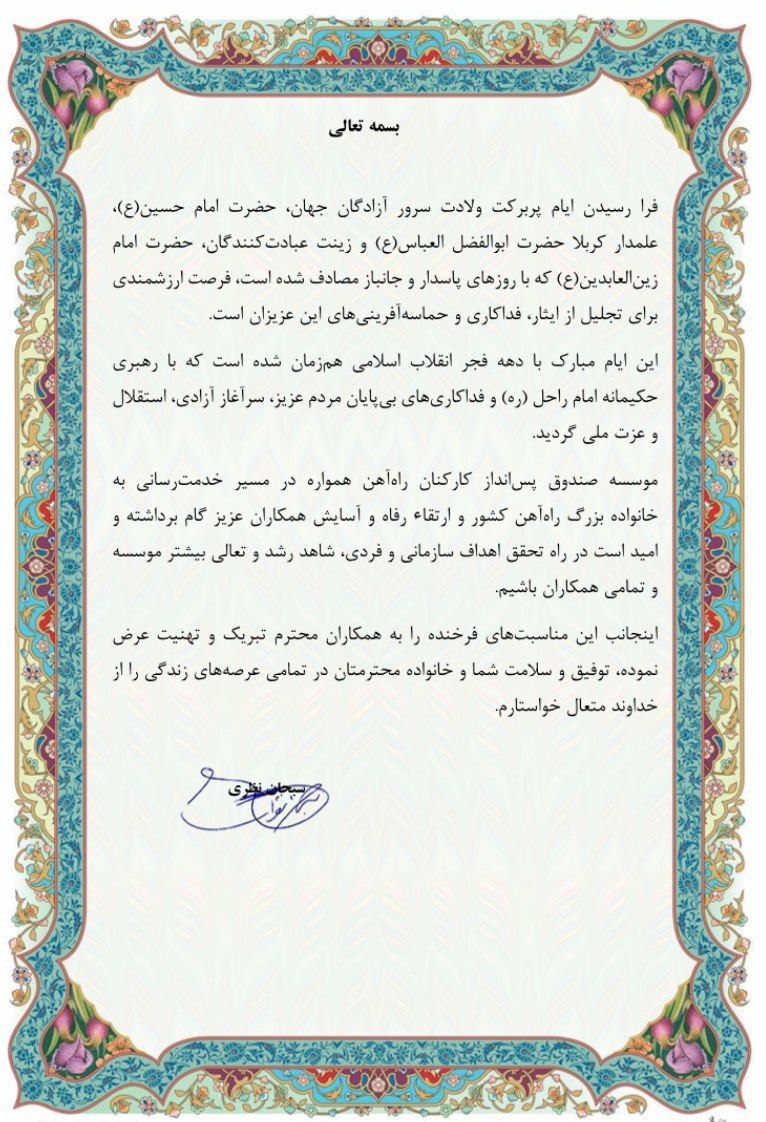 بسمه تعالی
فرا رسیدن ایام پربرکت ولادت سرور آزادگان جهان، حضرت امام حسین(ع)،
علمدار کربلا حضرت ابوالفضل العباس(ع) و زینت عبادت‌کنندگان، حضرت امام
زین‌العابدین(ع) که با روزهای پاسدار و جانباز مصادف شده است، فرصت ارزشمندی
برای تجلیل از ایثار، فداکاری و حماسه‌آفرینی‌های این عزیزان است.
این ایام مبارک با دهه فجر انقلاب اسلامی هم‌زمان شده است که با رهبری
حکیمانه امام راحل (ره) و فداکاری‌های بی‌پایان مردم عزیز، سرآغاز آزادی، استقلال
و عزت ملی گردید.
موسسه صندوق پس‌انداز کارکنان راه‌آهن همواره در مسیر خدمت‌رسانی به
خانواده بزرگ راه‌آهن کشور و ارتقاء رفاه و آسایش همکاران عزیز گام برداشته و
امید است در راه تحقق اهداف سازمانی و فردی، شاهد رشد و تعالی بیشتر موسسه
و تمامی همکاران باشیم.
اینجانب این مناسبت‌های فرخنده را به همکاران محترم تبریک و تهنیت عرض
نموده، توفیق و سلامت شما و خانواده محترمتان در تمامی عرصه‌های زندگی را از
خداوند متعال خواستارم.
سبحان نظری